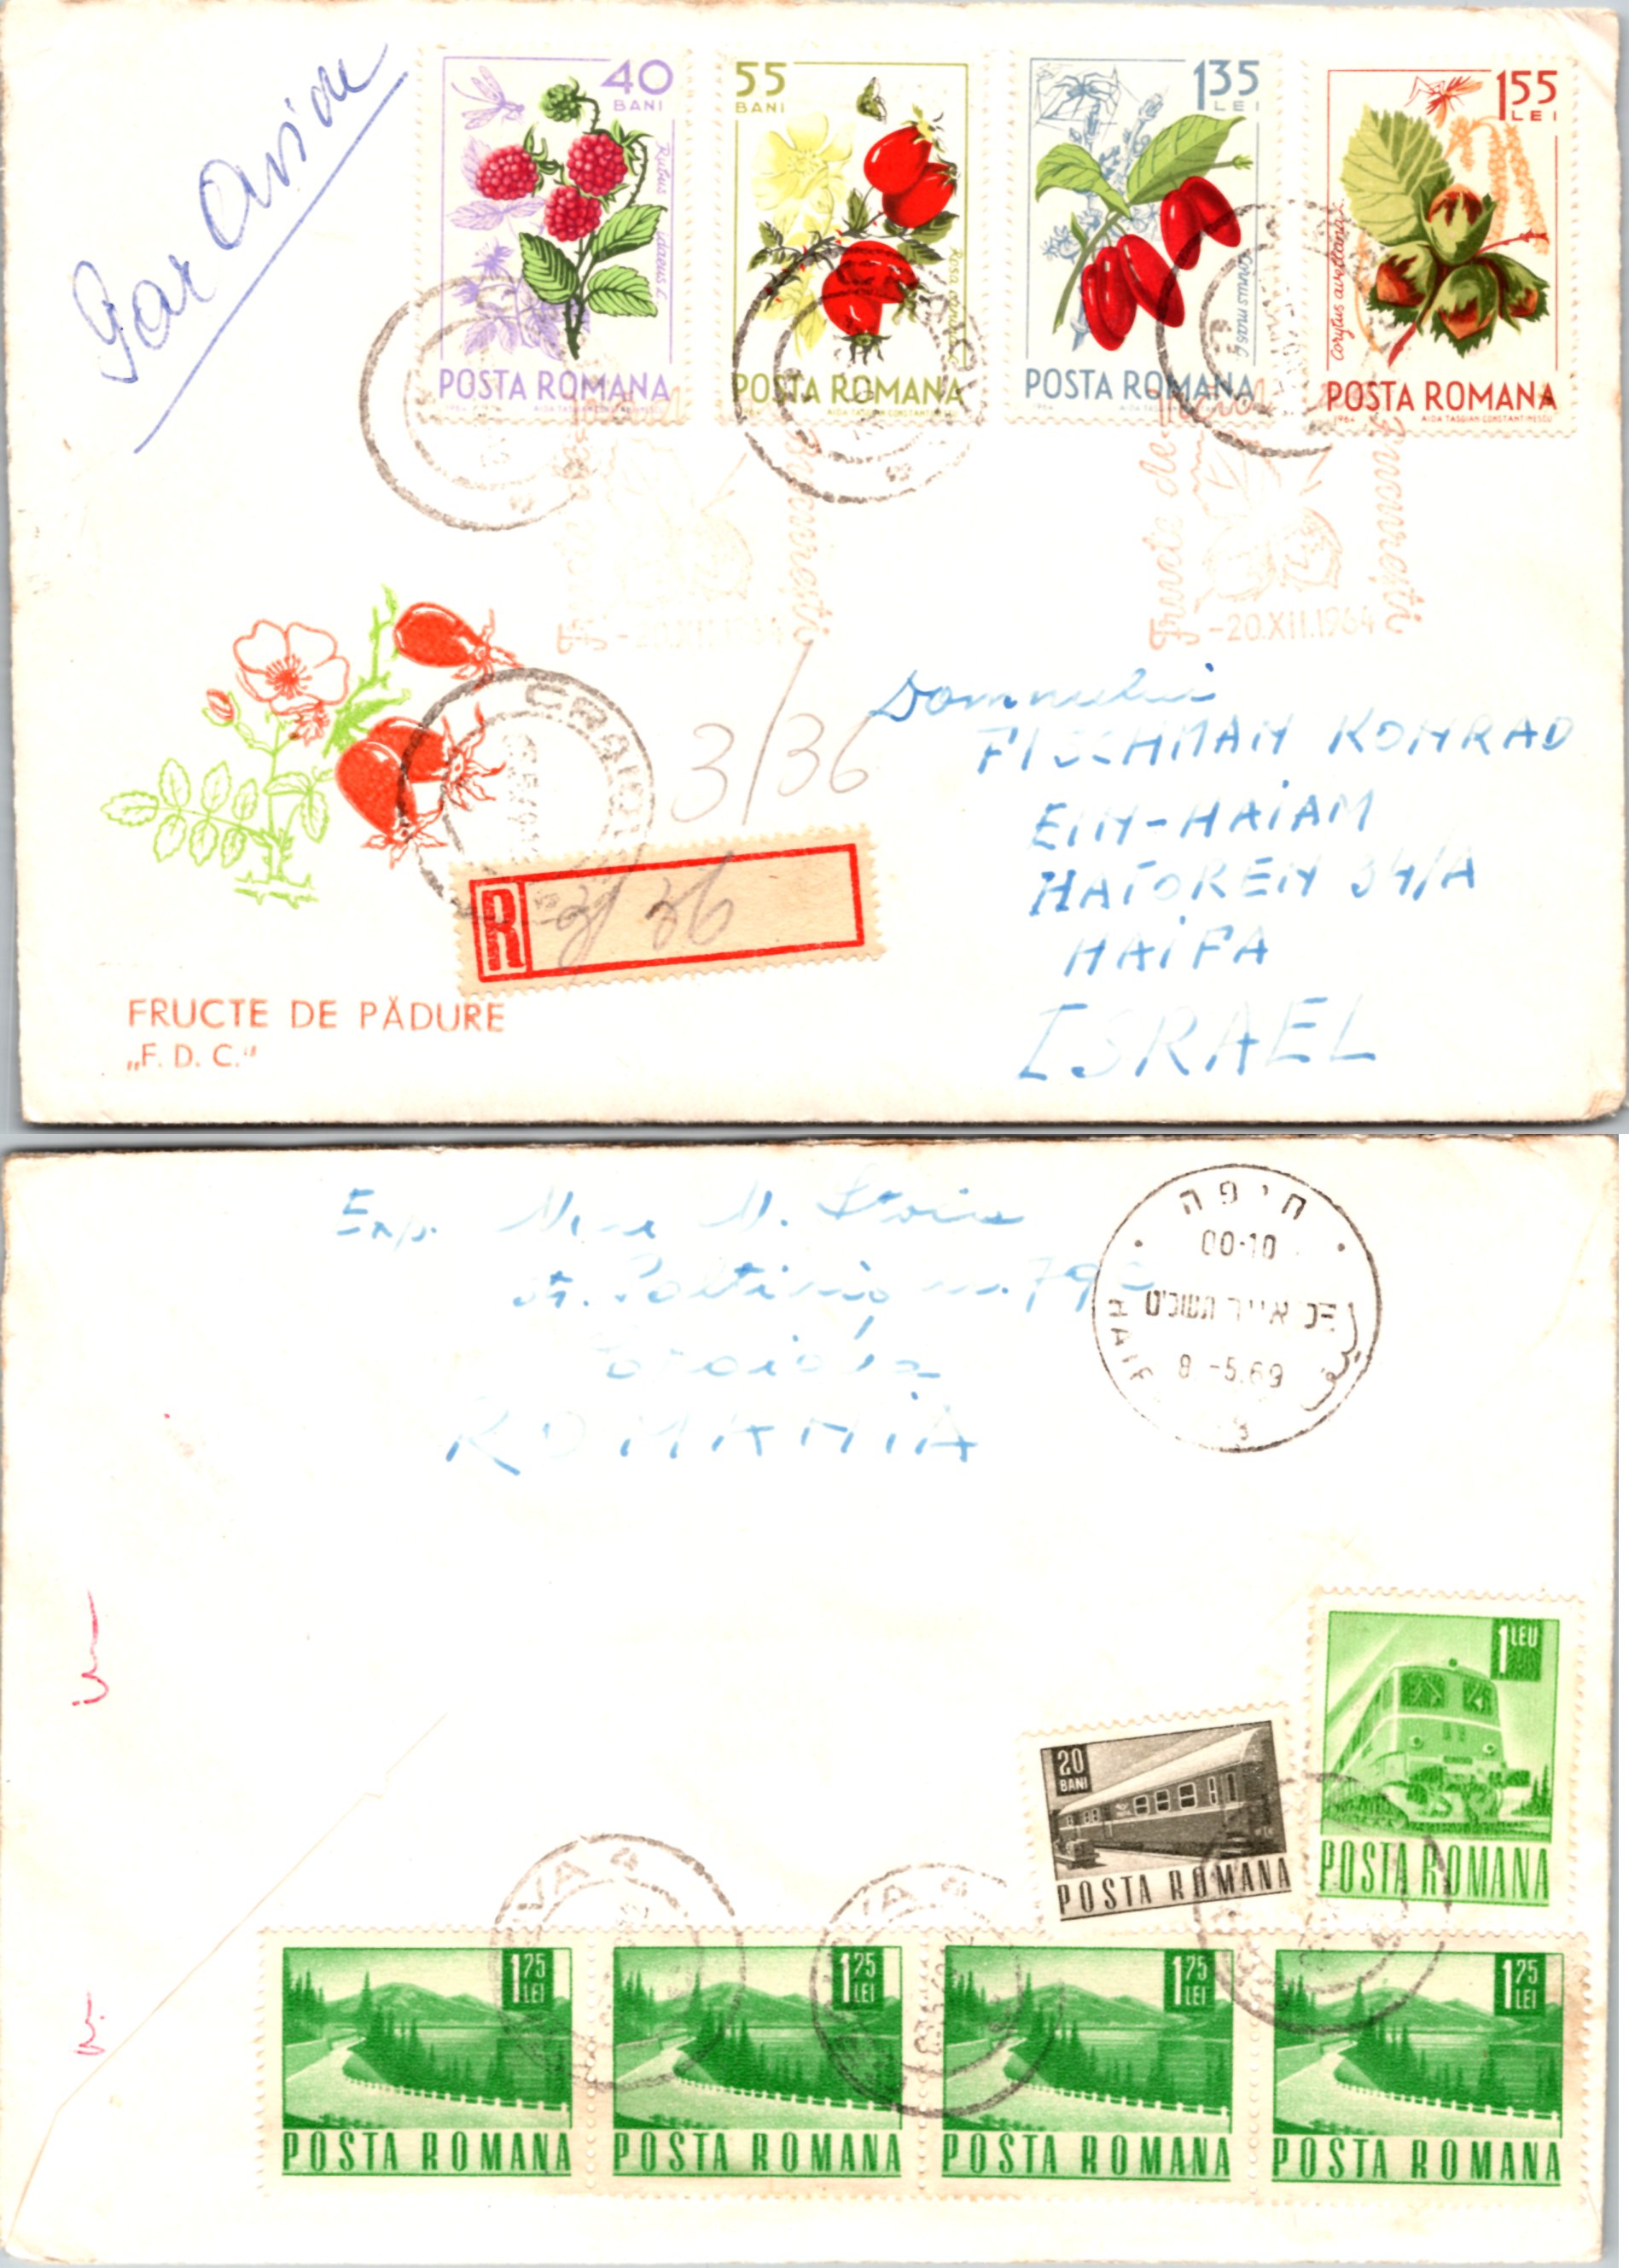 Par Avion
40
BANI
Rubus idaeus L
POSTA ROMANA
1964 AIDA TASGIAN CONSTANTINESCU
55
BANI
Rosa
POSTA ROMANA
AIDA TASGIAN CONSTANTINESCU
1.35
LEI
Cornus mas L
POSTA ROMANA
1964 AIDA TASGIAN
1.55
LEI
Corylus avellana
POSTA ROMANA
1964 AIDA TASGIAN CONSTANTINESCU
Fructe
București
-20.XII.1964
Fructe de
București
-20.XII.1964
CRAIOVA
3/36
R
3/36
Domnului
FISCHMAN KONRAD
EIN-HAIAM
HATOREN 34/A
HAIFA
ISRAEL
FRUCTE DE PĂDURE
„F. D. C."
Exp. M. Stoica
nr. 79
Craiova
ROMANIA
חיפה
00-10
כ אייר תשכ"ט
8.-5.69
HAIF
1 LEU
POSTA ROMANA
20
BANI
POSTA ROMANA
VA 4
VA 4
1.75
LEI
POSTA ROMANA
1.75
LEI
POSTA ROMANA
1.75
LEI
POSTA ROMANA
1.75
LEI
POSTA ROMANA